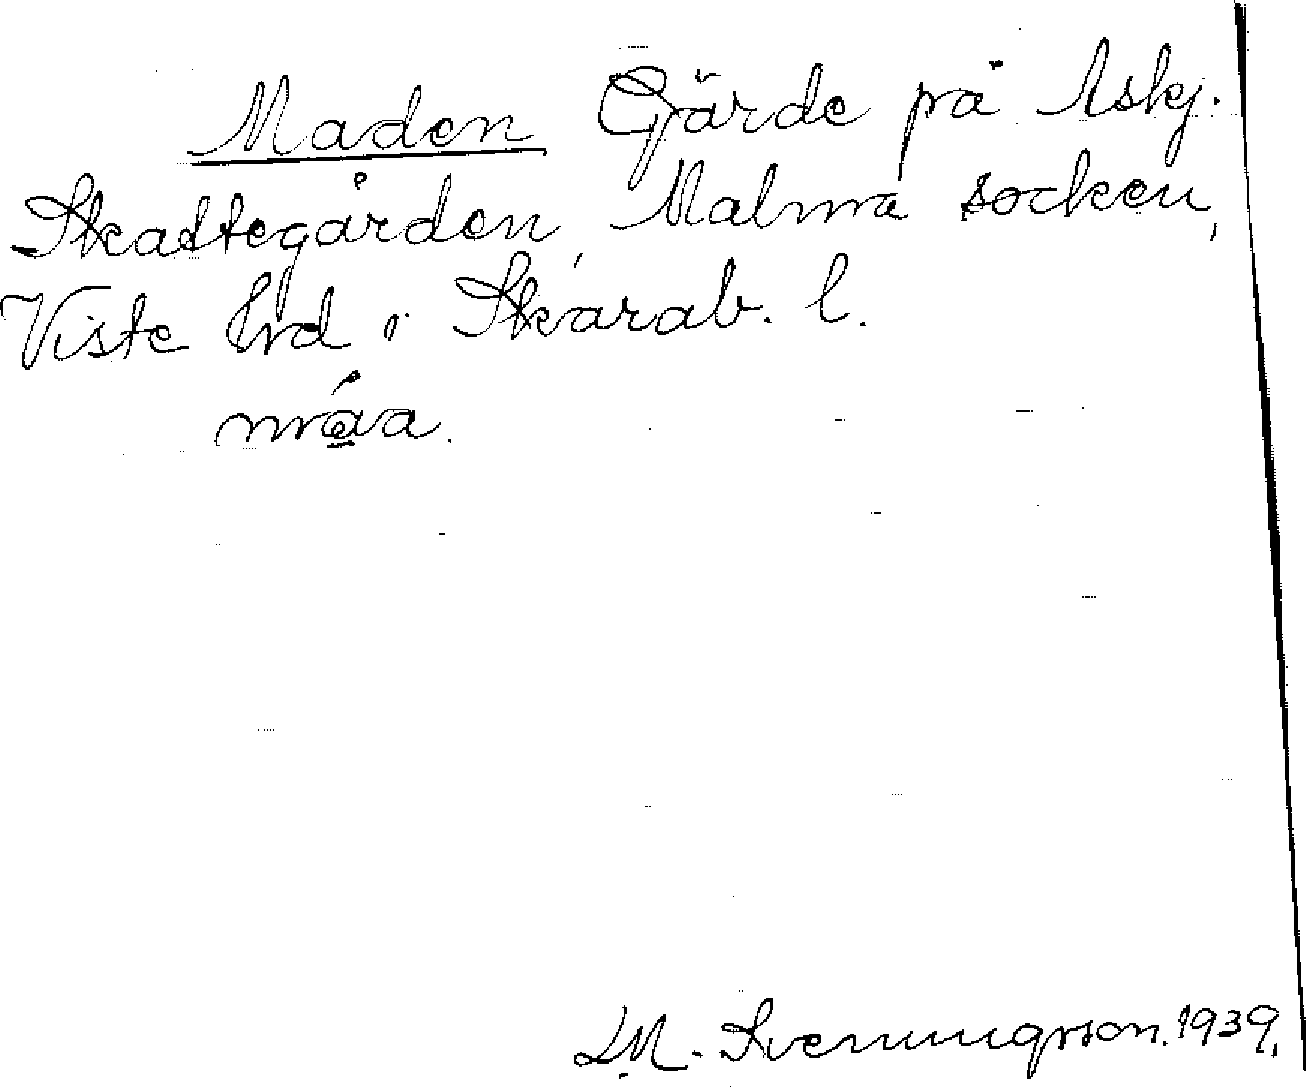 Maden Gärde på Askj.
Skattegården, Malma socken,
Viste hrd i Skarab. l.
L.M. Svenningsson. 1939.